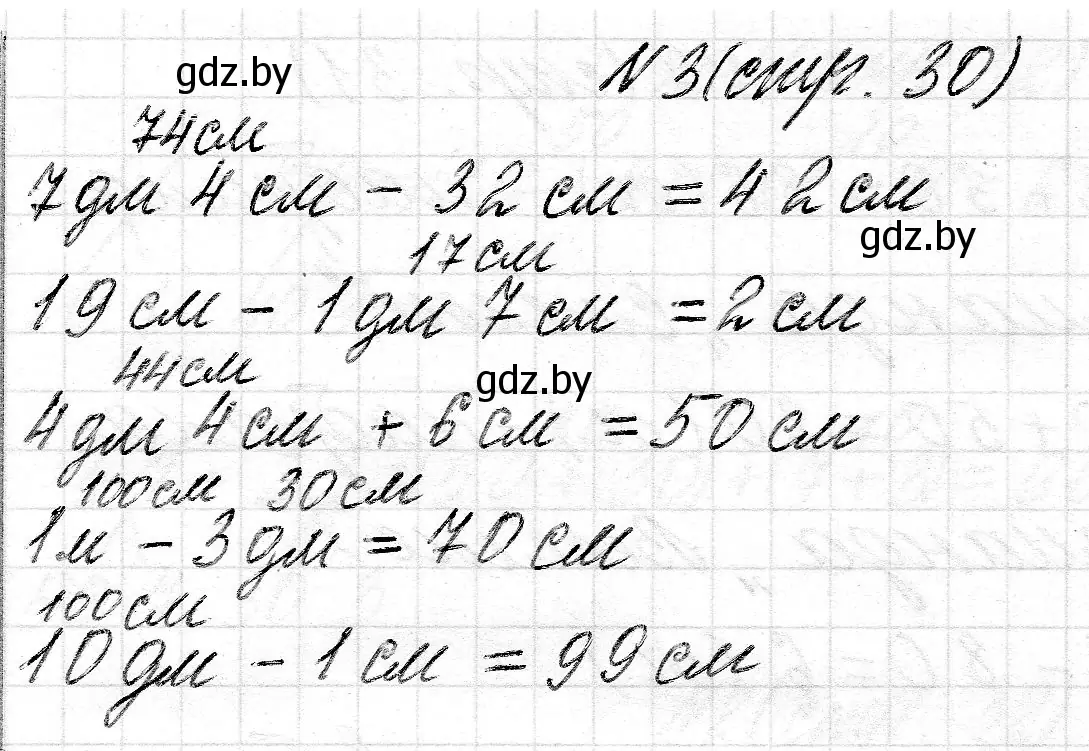 gdz.by № 3 (стр. 30)
74см
7дм 4см - 32см = 42см
gdz.by
17см
19см - 1дм 7см = 2см
44см
gdz.by
4дм 4см + 6см = 50см
100см 30см
1м - 3дм = 70см
100см
10дм - 1см = 99см